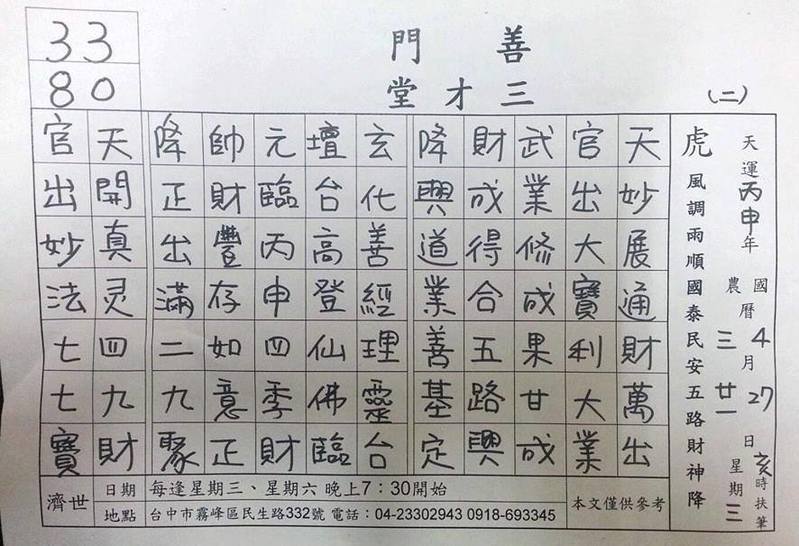 善門
三才堂
(二)
33
80
天運丙申年
國曆4月27日亥時扶筆
農曆三月廿一日星期三
虎
風調雨順國泰民安五路財神降
天妙展通財萬出
官出大寶利大業
武業修成果廿成
財成得合五路興
降興道業善基定
玄化善經理靈台
壇台高登仙佛臨
元臨丙申四季財
帥財豐存如意正
降正出滿二九聚
天開真灵四九財
官出妙法七七寶
濟世
日期 每逢星期三、星期六 晚上7：30開始
地點 台中市霧峰區民生路332號 電話：04-23302943 0918-693345
本文僅供參考